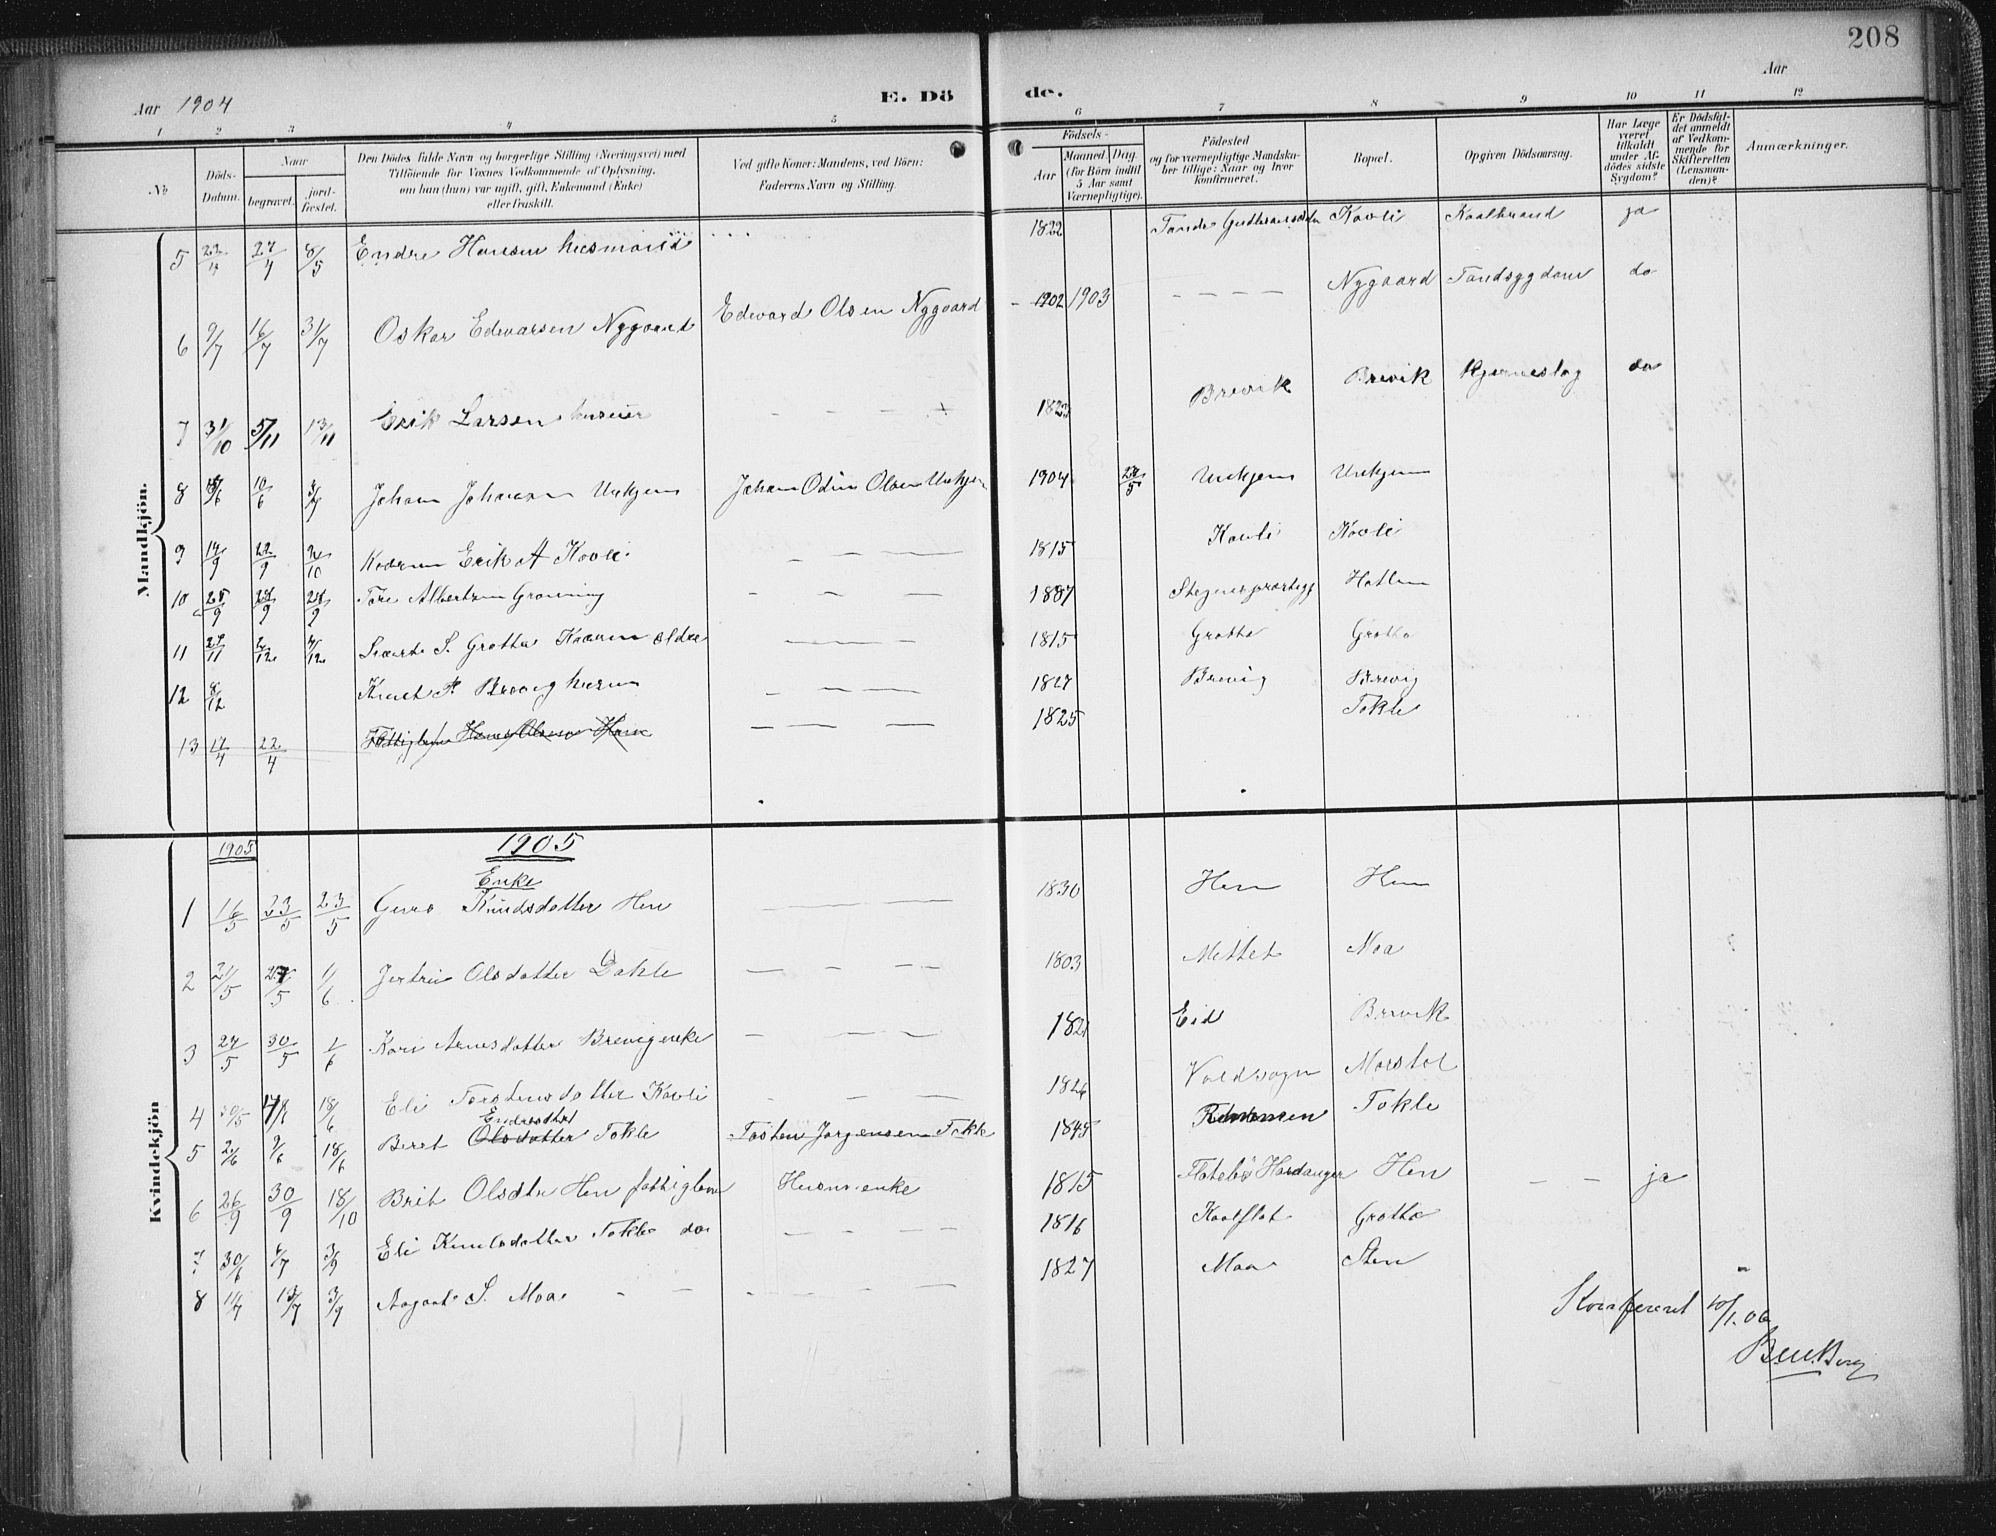 208
Aar 1904
E. Dö
de.
Aar
1 2 3 4 5 6 7 8 9 10 11 12
No
Döds-Datum.
Naar
begravet.
jord-fæstet.
Den Dödes fulde Navn og borgerlige Stilling (Næringsvei) med
Tilföiende for Voxnes Vedkommende af Oplysning,
om han (hun) var ugift, gift, Enkemand (Enke)
eller fraskilt.
Ved gifte Koner: Mandens, ved Börn:
Faderens Navn og Stilling.
Födsels-
Aar
Maaned. Dag.
(for Börn indtil
5 Aar samt
Værnepligtige).
Födested
og for værnepligtige Mandska-
ber tillige: Naar og hvor
konfirmeret.
Bopæl.
Opgiven Dödsaarsag.
Har Læge
været
tilkaldt
under Af-
dödes sidste
Sygdom?
Er Dödsfal-
det anmeldt
af Vedkom-
mende for
Skifteretten
(Lensman-
den)?
Anmærkninger.
Mandkjön.
5 22/4 27/4 8/5 Endre Hansen husmand 1822 Kavli Kaalbrand ja
6 9/7 16/7 31/7 Oskar Edvarsen Nygaard Edvard Olsen Nygaard 1902 1903 – – – – Nygaard Tandsygdom do
7 31/10 5/11 13/11 Erik Larsen – – – 1823 Brevik Brevik Hjerneslag do
8 10/6 Johan Johansen Unhjem Johan Odin Olsen Unhjem 1904 Unhjem Unhjem
9 22/9 Kaarm Erik A Kavli – – – 1815 Kavli Kavli
10 28/9 Tore Albertsen Grønning – – – 1887 Hatlen
11 27/11 Sivert S. Grøtta Kaarm ældre – – – 1815 Grøtta Grøtta
12 8/12 Knut P. Brevig husm – – – 1827 Brevig Brevig
13 17/4 22/4 Fattiglem Hans Olsen Hen – – – 1825 Tokle
Kvindekjön
1905 1905
Enke
1 16/5 23/5 23/5 Guro Knudsdatter Hen – – – 1830 Hen Hen
2 21/5 27/5 1/6 Jertru Olsdatter Dahle – – – 1803 Mittet Moa
3 27/5 30/5 1/6 Kari Arnesdatter Brevig enke – – – 1821 Eid Brevik
4 30/5 18/6 Eli Torstensdatter Kavli – – – 1826 Voldsogn Morstøl
Endresdtr
5 2/6 9/6 18/6 Beret Olsdatter Tokle Tosten Jørgensen Tokle 1845 Tokle
6 26/9 30/9 18/10 Brit Olsdtr Hen fattiglem Husm. enke 1815 Hardanger Hen – – ja
7 30/6 3/9 Eli Knudsdatter Tokle do – – – 1816 Kaalflot Grøtta
8 11/7 3/9 Aagaat S. Moa – – – – – 1827 Moa Sten
Konfereret 10/1. 06